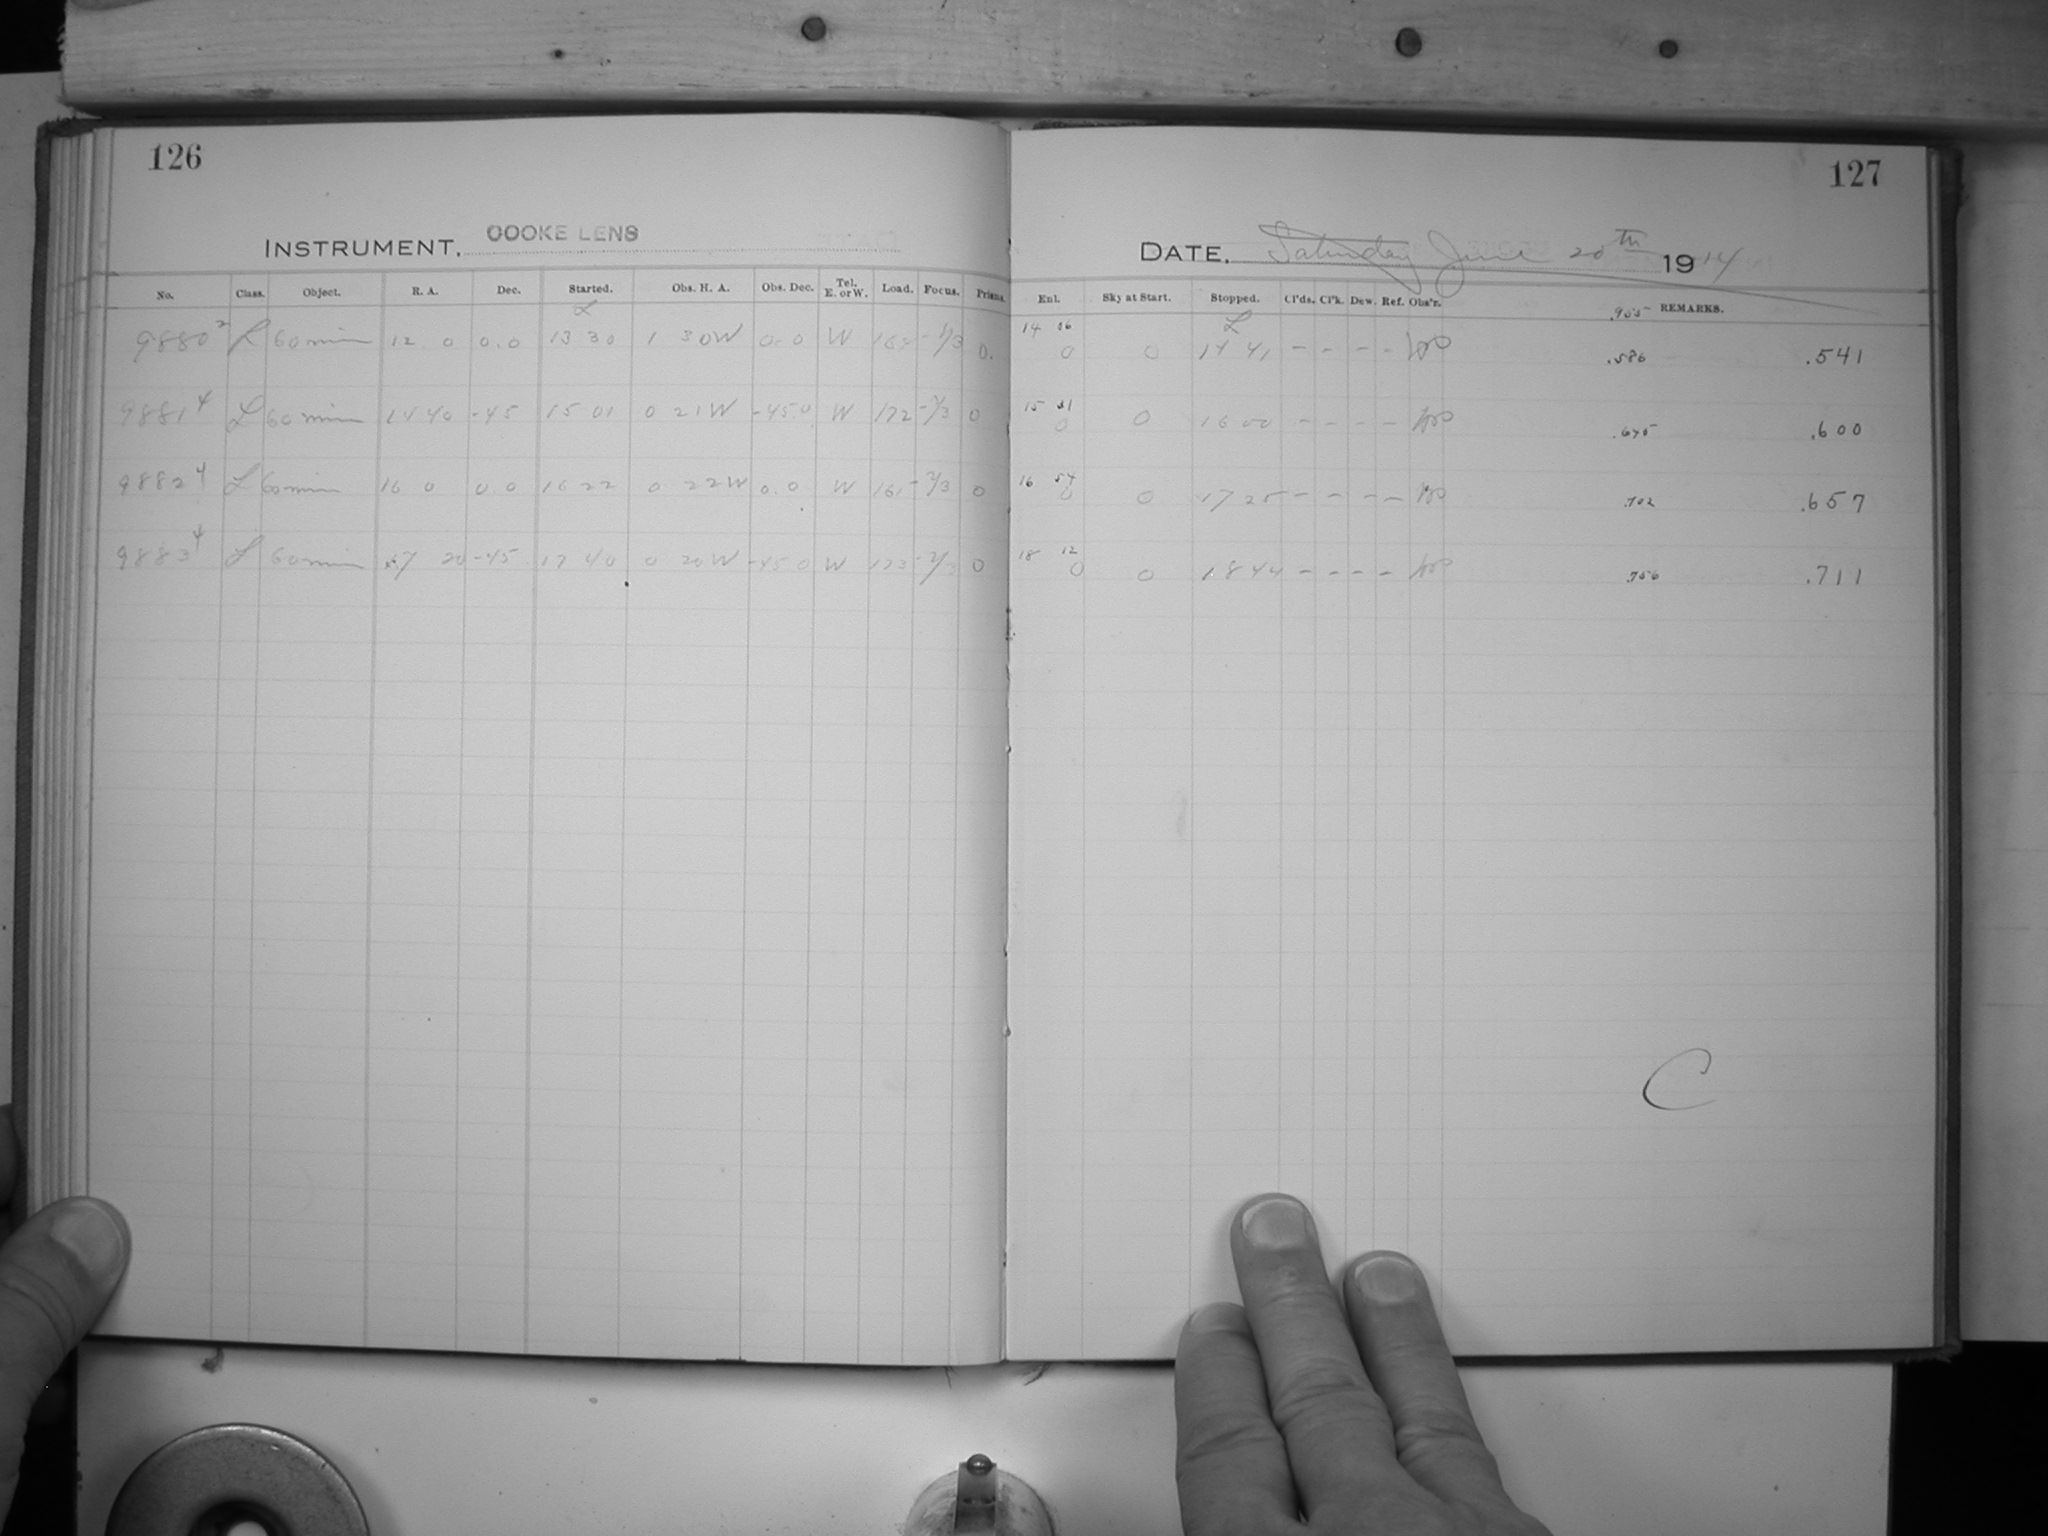 126
INSTRUMENT. COOKE LENS
No. Class. Object. R. A. Dec. Started. Obs. H. A. Obs. Dec. Tel. E. or W. Load. Focus. Prisms.
L
9880 2 L 60 min 12 0 0.0 13 30 1 30W 0.0 W -1/3 0.
9881 4 L 60 min 14 40 -45 15 01 0 21W -45.0 W 172 -2/3 0
9882 4 L 60 min 16 0 0.0 16 22 0 22W 0.0 W 161 -2/3 0
9883 4 L 60 min 17 20 -45 17 40 0 20W -45 0 W 173 -2/3 0
127
DATE. Saturday June 20th 1914
Enl. Sky at Start. Stopped. Cl'ds. Cl'k. Dew. Ref. Obs'r. REMARKS.
L .955
14 06
0 0 14 41 - - - - .586 .541
15 31
0 0 16 00 - - - - .645 .600
16 54
0 0 17 25 - - - - .702 .657
18 12
0 0 18 44 - - - - .756 .711
C